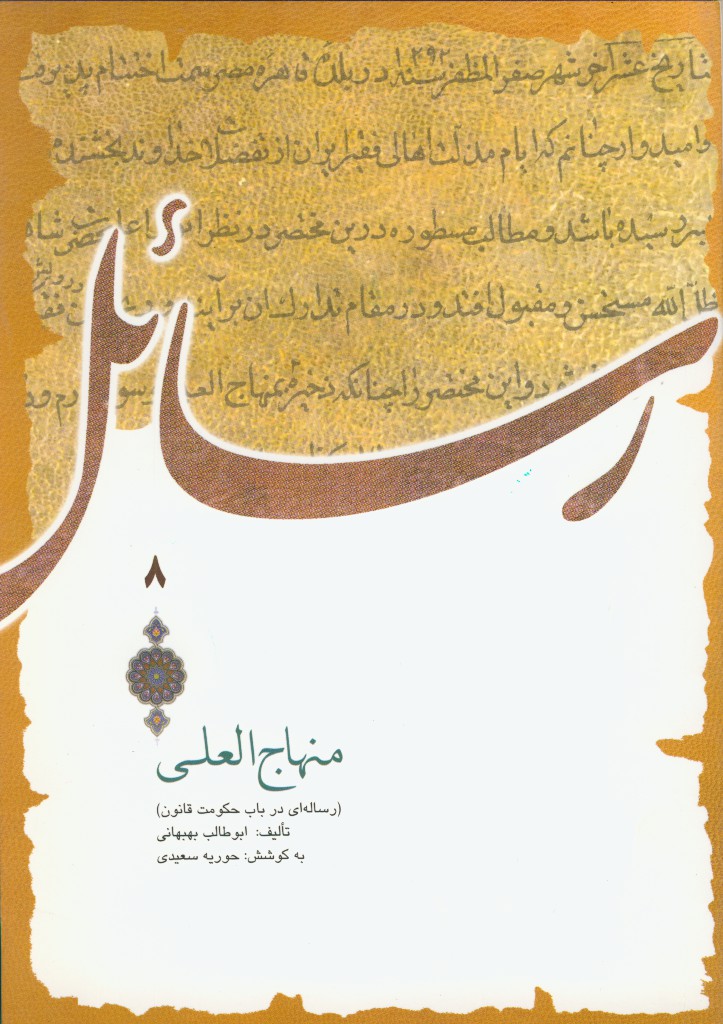 تاریخ عشر آخر شهر صفر المظفر سنه ۱۲۹۲ در بلده قاهره مصر سمت اختتام پذیرفت
و امیدوار چنانم که ایام مذلت اهالی فقیر ایران از تفضلات خداوند بخشنده
بسر رسیده باشد و مطالب مسطوره درین مختصر در نظر
ظل الله مستحسن و مقبول افتد و در مقام تدارک آن بر
و این مختصر را چنانکه ذخیره منهاج
رسائل
۸
منهاج العلی
(رساله‌ای در باب حکومت قانون)
تألیف: ابوطالب بهبهانی
به کوشش: حوریه سعیدی